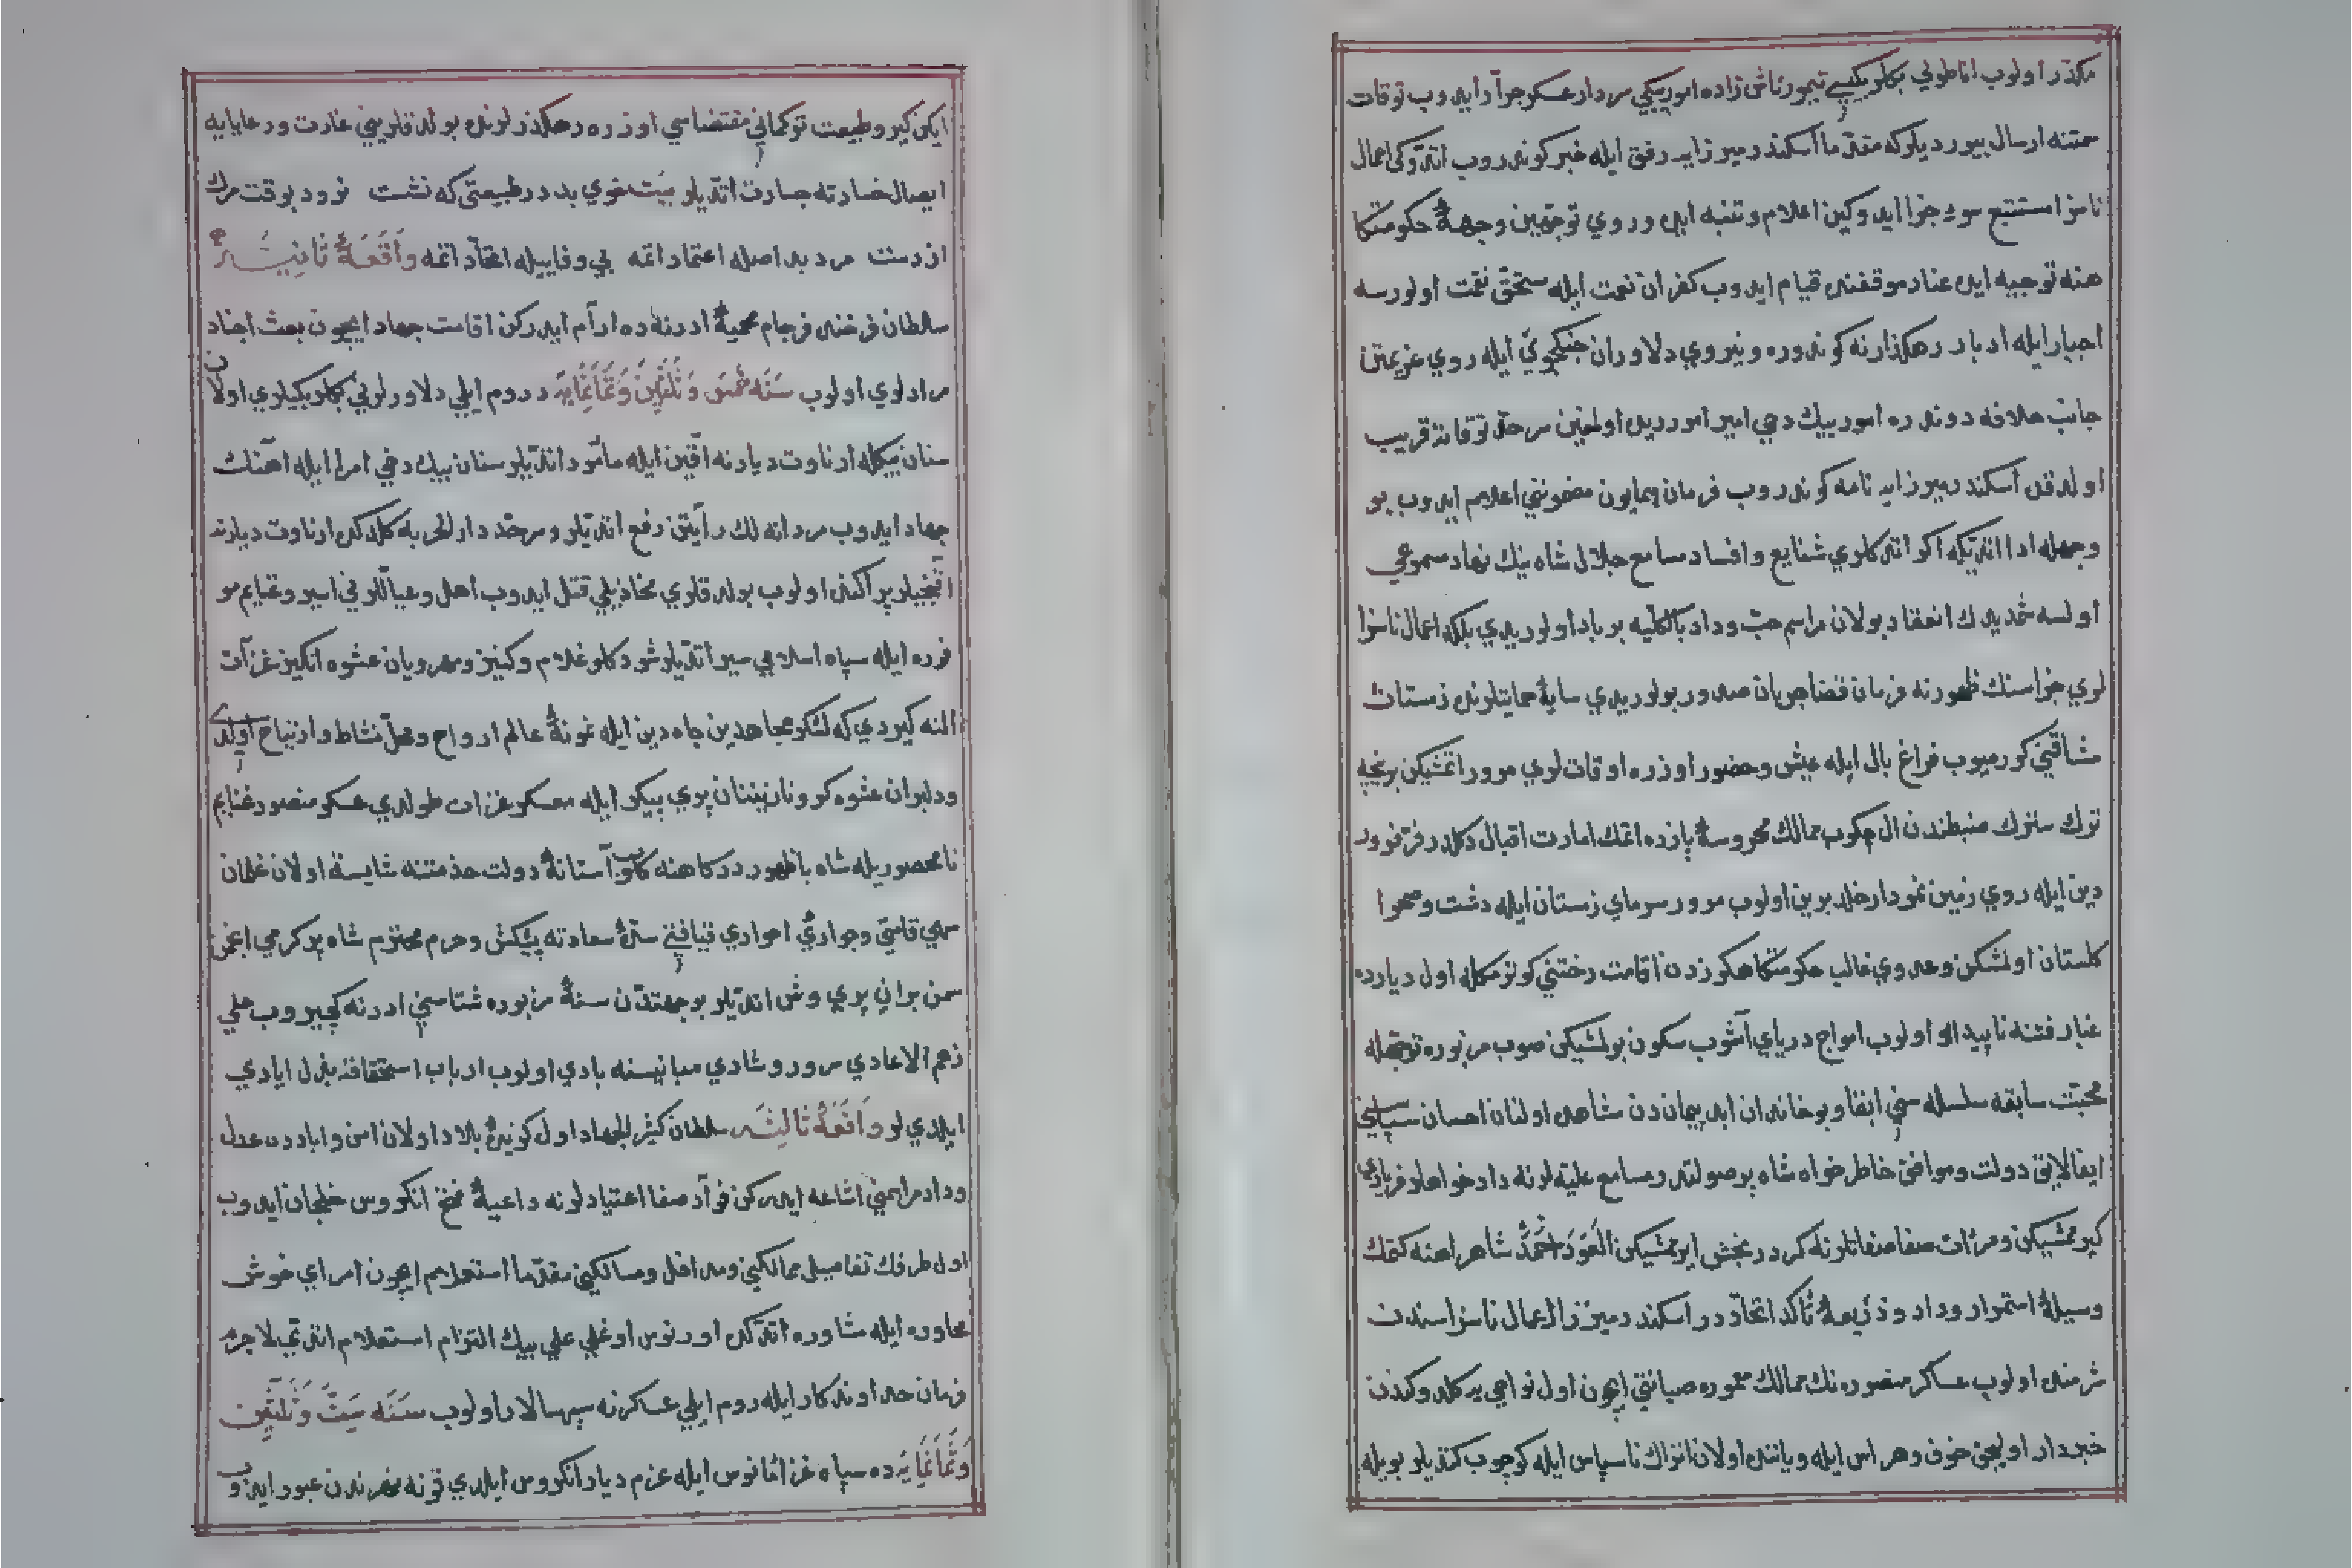 مكدر اولوب اناطولي بكلربكيسي تيمورتاش زاده امور بيكي سردار عسكر جرار ايدوب توقات
سمتنه ارسال بيورديلر كه مقدما اسكندر ميرزايه رفق ايله خبر كوندروب اتدوكي اعمال
ناسزا مستتبع سوء جزا ايدوكين اعلام و تنبه ايده و روي توجهين وجهۀ حكومتكا
هنه توجيه ايده عناد موقفنده قيام ايدوب كفران نعمت ايله مستحق نقمت اولورسه
اجبار ايله ادبار رهكذارنه كوندوره و نيروي دلاوران جنكجوي ايله روي عزيمتن
جانب خلافه دوندره امور بيك دخي امير امور ديده اولمغين سرحد توقاته قريب
اولدقده اسكندر ميرزايه نامه كوندروب فرمان همايون مضمونني اعلام ايدوب بو
وجهله ادا اتديكه اكر اتدكلري شنايع و افساد مسامع جلال شاه نيك نهاد مسموعي
اولسه شمديدك انعقاد بولان مراسم حب و وداد بالكليه برباد اولوريدي بلكه اعمال ناسزا
لري جزاسنك ظهورنه فرمان قضا جريان صدور بولوريدي سايۀ حمايتلرنده زمستان
مشاقني كورميوب فراغ بال ايله عيش و حضور اوزره اوقاتلري مرور اتمشيكن برنجه
ترك سترك ضبطندن ال چكوب ممالك محروسۀ يازده اتمك امارت اقبال دكلدر فر فرور
دين ايله روي زمين نمودار خلد برين اولوب مرور سرماي زمستان ايله دشت و صحرا
كلستان اولمشكن و عدوي غالب حكومتكاهكوزدن اقامت رختني كوتورمكله اول ديارده
غبار فتنه ناپيدا اولوب امواج درياي آشوب سكون بولمشيكن صوب مزبوره توجهله
محبت سابقه سلسله سني ابقا و بو خاندان ابد پيماندن مشاهد اولنان احسان سپاسني
ايفا لايق دولت و موافق خاطرخواه شاه پر صولتدر مسامع عليه لرنه دادخواهلر فريادي
كيرمشيكن و مرآت صفا صفاتلرنه كرد رنجش ايرمشيكن العود احمد شاهراهنه كتمك
وسيلۀ استمرار وداد و ذريعۀ تأكد اتحاددر اسكندر ميرزا اعمال ناسزاسندن
شرمنده اولوب عساكر منصوره نك ممالك معموره صيانتي ايچون اول نواحي يه كلدوكندن
خبردار اوليجق خوف و هراس ايله و يانده اولان اتراك ناسپاس ايله كوچوب كتديلر بويله
ايكن كبر و طبيعت تركماني مقتضاسي اوزره رهكذرلرنده بولدقلريني غارت و رعايايه
ايصال خسارته جسارت اتديلر بيت خوي بد در طبيعتي كه نشست نرود بوقت مرك
از دست مرد بد اصله اعتماد اتمه بي وفاييله اتحاد اتمه واقعۀ ثانيه
سلطان فرخنده فرجام محميۀ ادرنه ده آرام ايدركن اقامت جهاد ايچون بعث اجناد
مرادلري اولوب سنه خمس وثلثين وثمانمايه ده روم ايلي دلاورلريني بكلربكيلري اولان
سنان بيكله ارناوت ديارنه آقين ايله مأمور اتديلر سنان بيك دخي امرا ايله آهنك
جهاد ايدوب مردانه لك رأيتن رفع اتديلر و سرحد دار الحربه كلدكده ارناوت ديارنه
آقنجيلر پراكنده اولوب بولدقلري مخاذيلي قتل ايدوب اهل و عياللرني اسير و غنايم مو
فوره ايله سپاه اسلامي سير اتديلر شودكلو غلام و كنيز و مهرويان عشوه انكيز غزات
النه كيردي كه لشكر مجاهدين جاه دين ايله نمونۀ عالم ارواح و محل نشاط و ارتياح اولدي
و دلبران عشوه كر و نازنينان پري پيكر ايله معسكر غزات طولدي عسكر منصور غنايم
نامحصوريله شاه باظهور دركاهنه كلوب آستانۀ دولت خدمتنه شايسته اولان غلمان
سهي قامتي و جواريء حواري قيافتي ستۀ سعادته پيشكش و حرم محترم شاه پر كرمي انجمن
سمن بران پري وش اتديلر بو جهتدن سنۀ مزبوره شتاسني ادرنه كچيروب علي
زعم الاعادي سرور و شادي مبانيسنه بادي اولوب ارباب استحقاقه بذل ايادي
ايلديلر واقعۀ ثالثه سلطان كثير الجهاد اول كوننۀ بلاد اولان امن واباددن عدل
و داد مراسمني اشاعه ايدركن فؤاد صفا اعتيادلرنه داعيۀ فتح انكروس خلجان ايدوب
اول طرفك تفاصيل ممالكني و مداخل و مسالكني مقدما استعلام ايچون امراي خوش
محاوره ايله مشاوره اتدكده اورنوس اوغلي علي بيك التزام استعلام اتديتي لاجرم
فرمان خداوندكار ايله روم ايلي عساكرنه سپهسالار اولوب سنه ست وثلثين
وثمانمايه ده سپاه غزا مأنوس ايله عزم ديار انكروس ايلدي تونه نهرندن عبور ايدوب